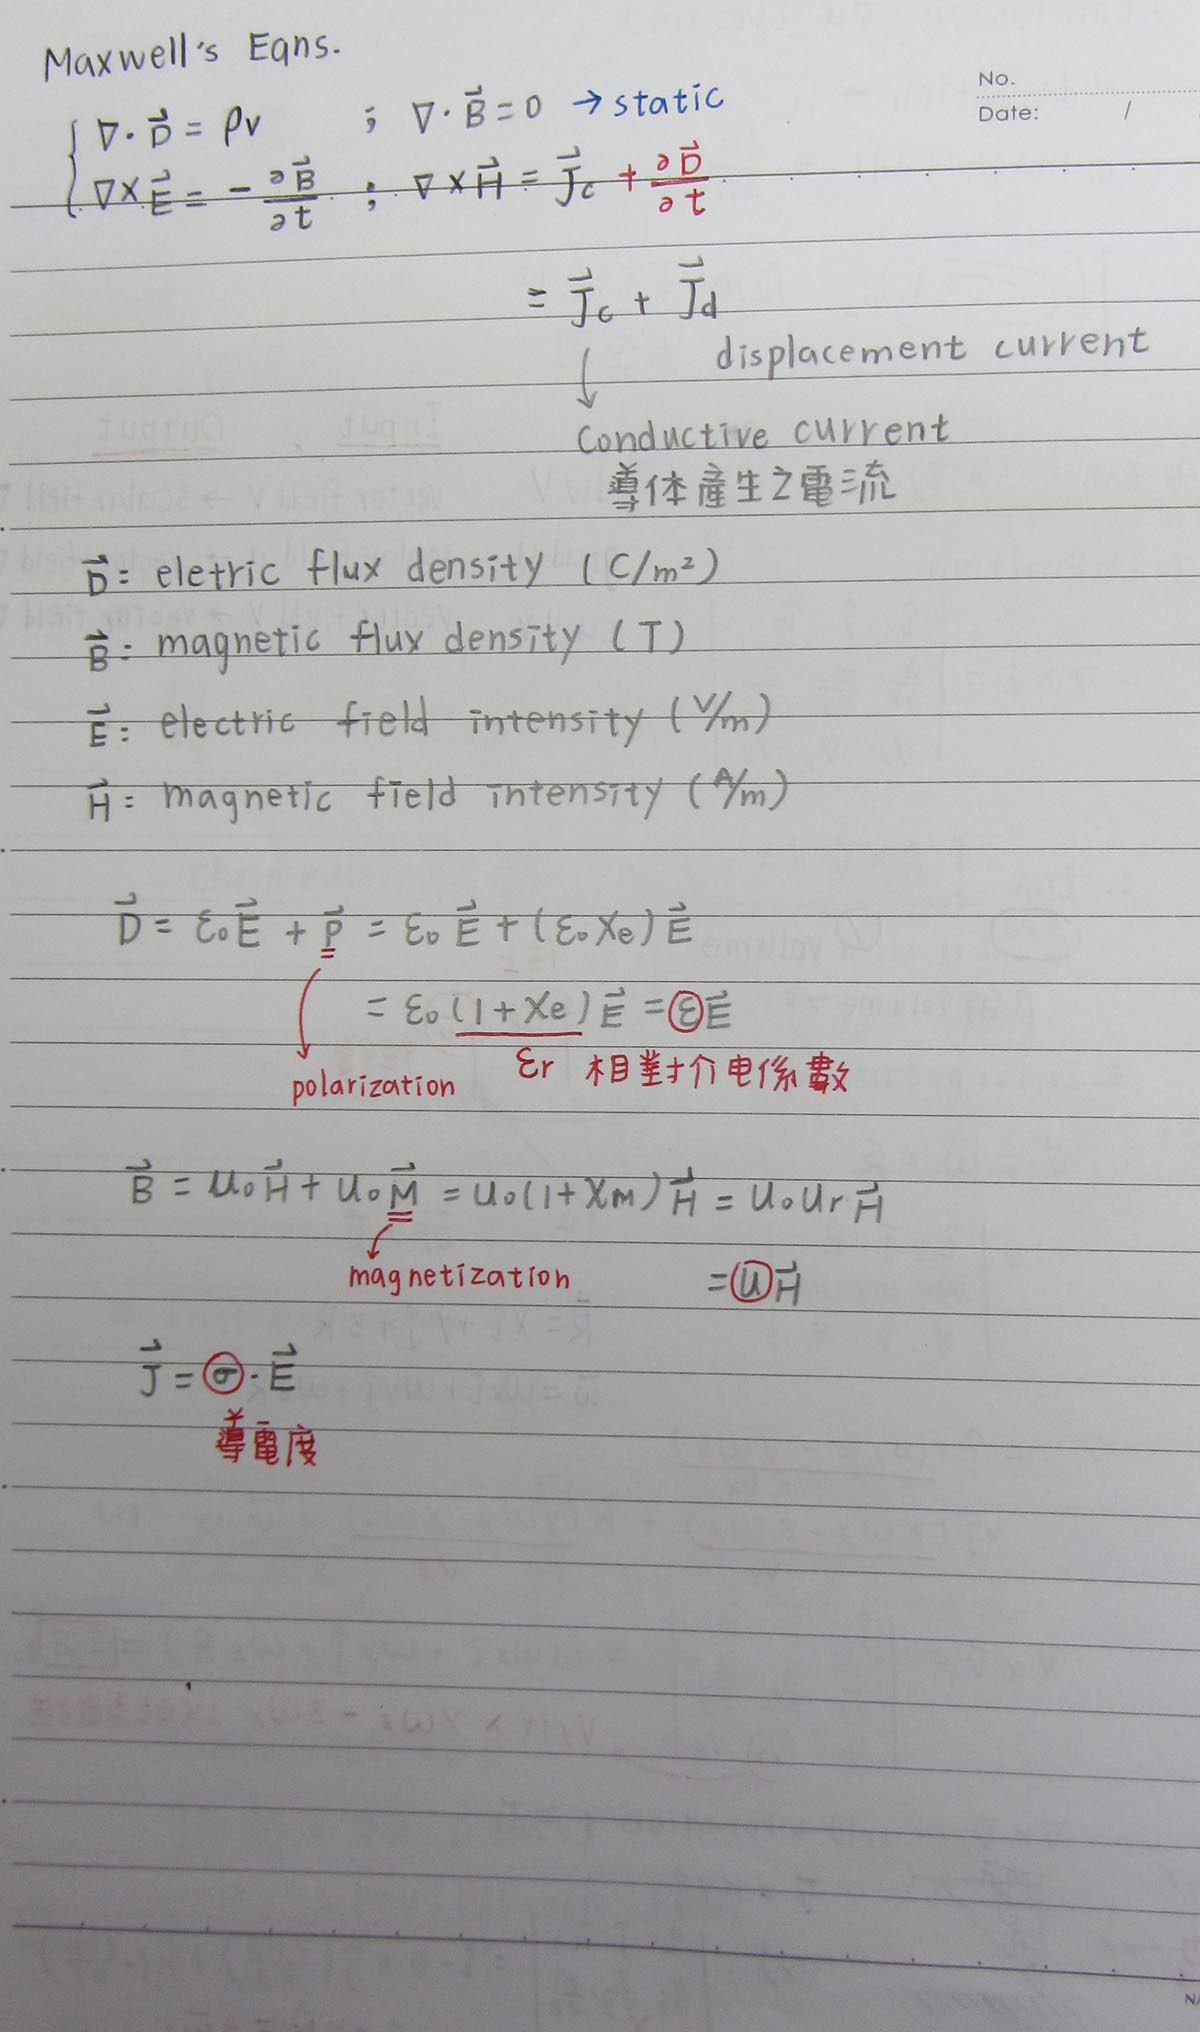 Maxwell's Eqns.
No.
Date: /
∇·D⃗ = ρv ; ∇·B⃗ = 0 → static
∇×E⃗ = - ∂B⃗/∂t ; ∇×H⃗ = J⃗c + ∂D⃗/∂t
= J⃗c + J⃗d
displacement current
Conductive current
導体產生之電流
D⃗: eletric flux density (C/m²)
B⃗: magnetic flux density (T)
E⃗: electric field intensity (V/m)
H⃗: magnetic field intensity (A/m)
D⃗ = ε₀E⃗ + P⃗ = ε₀E⃗ + (ε₀χe)E⃗
= ε₀(1+χe)E⃗ = εE⃗
polarization εr 相對介电係數
B⃗ = u₀H⃗ + u₀M⃗ = u₀(1+χM)H⃗ = u₀urH⃗
magnetization = uH⃗
J⃗ = σ·E⃗
導電度